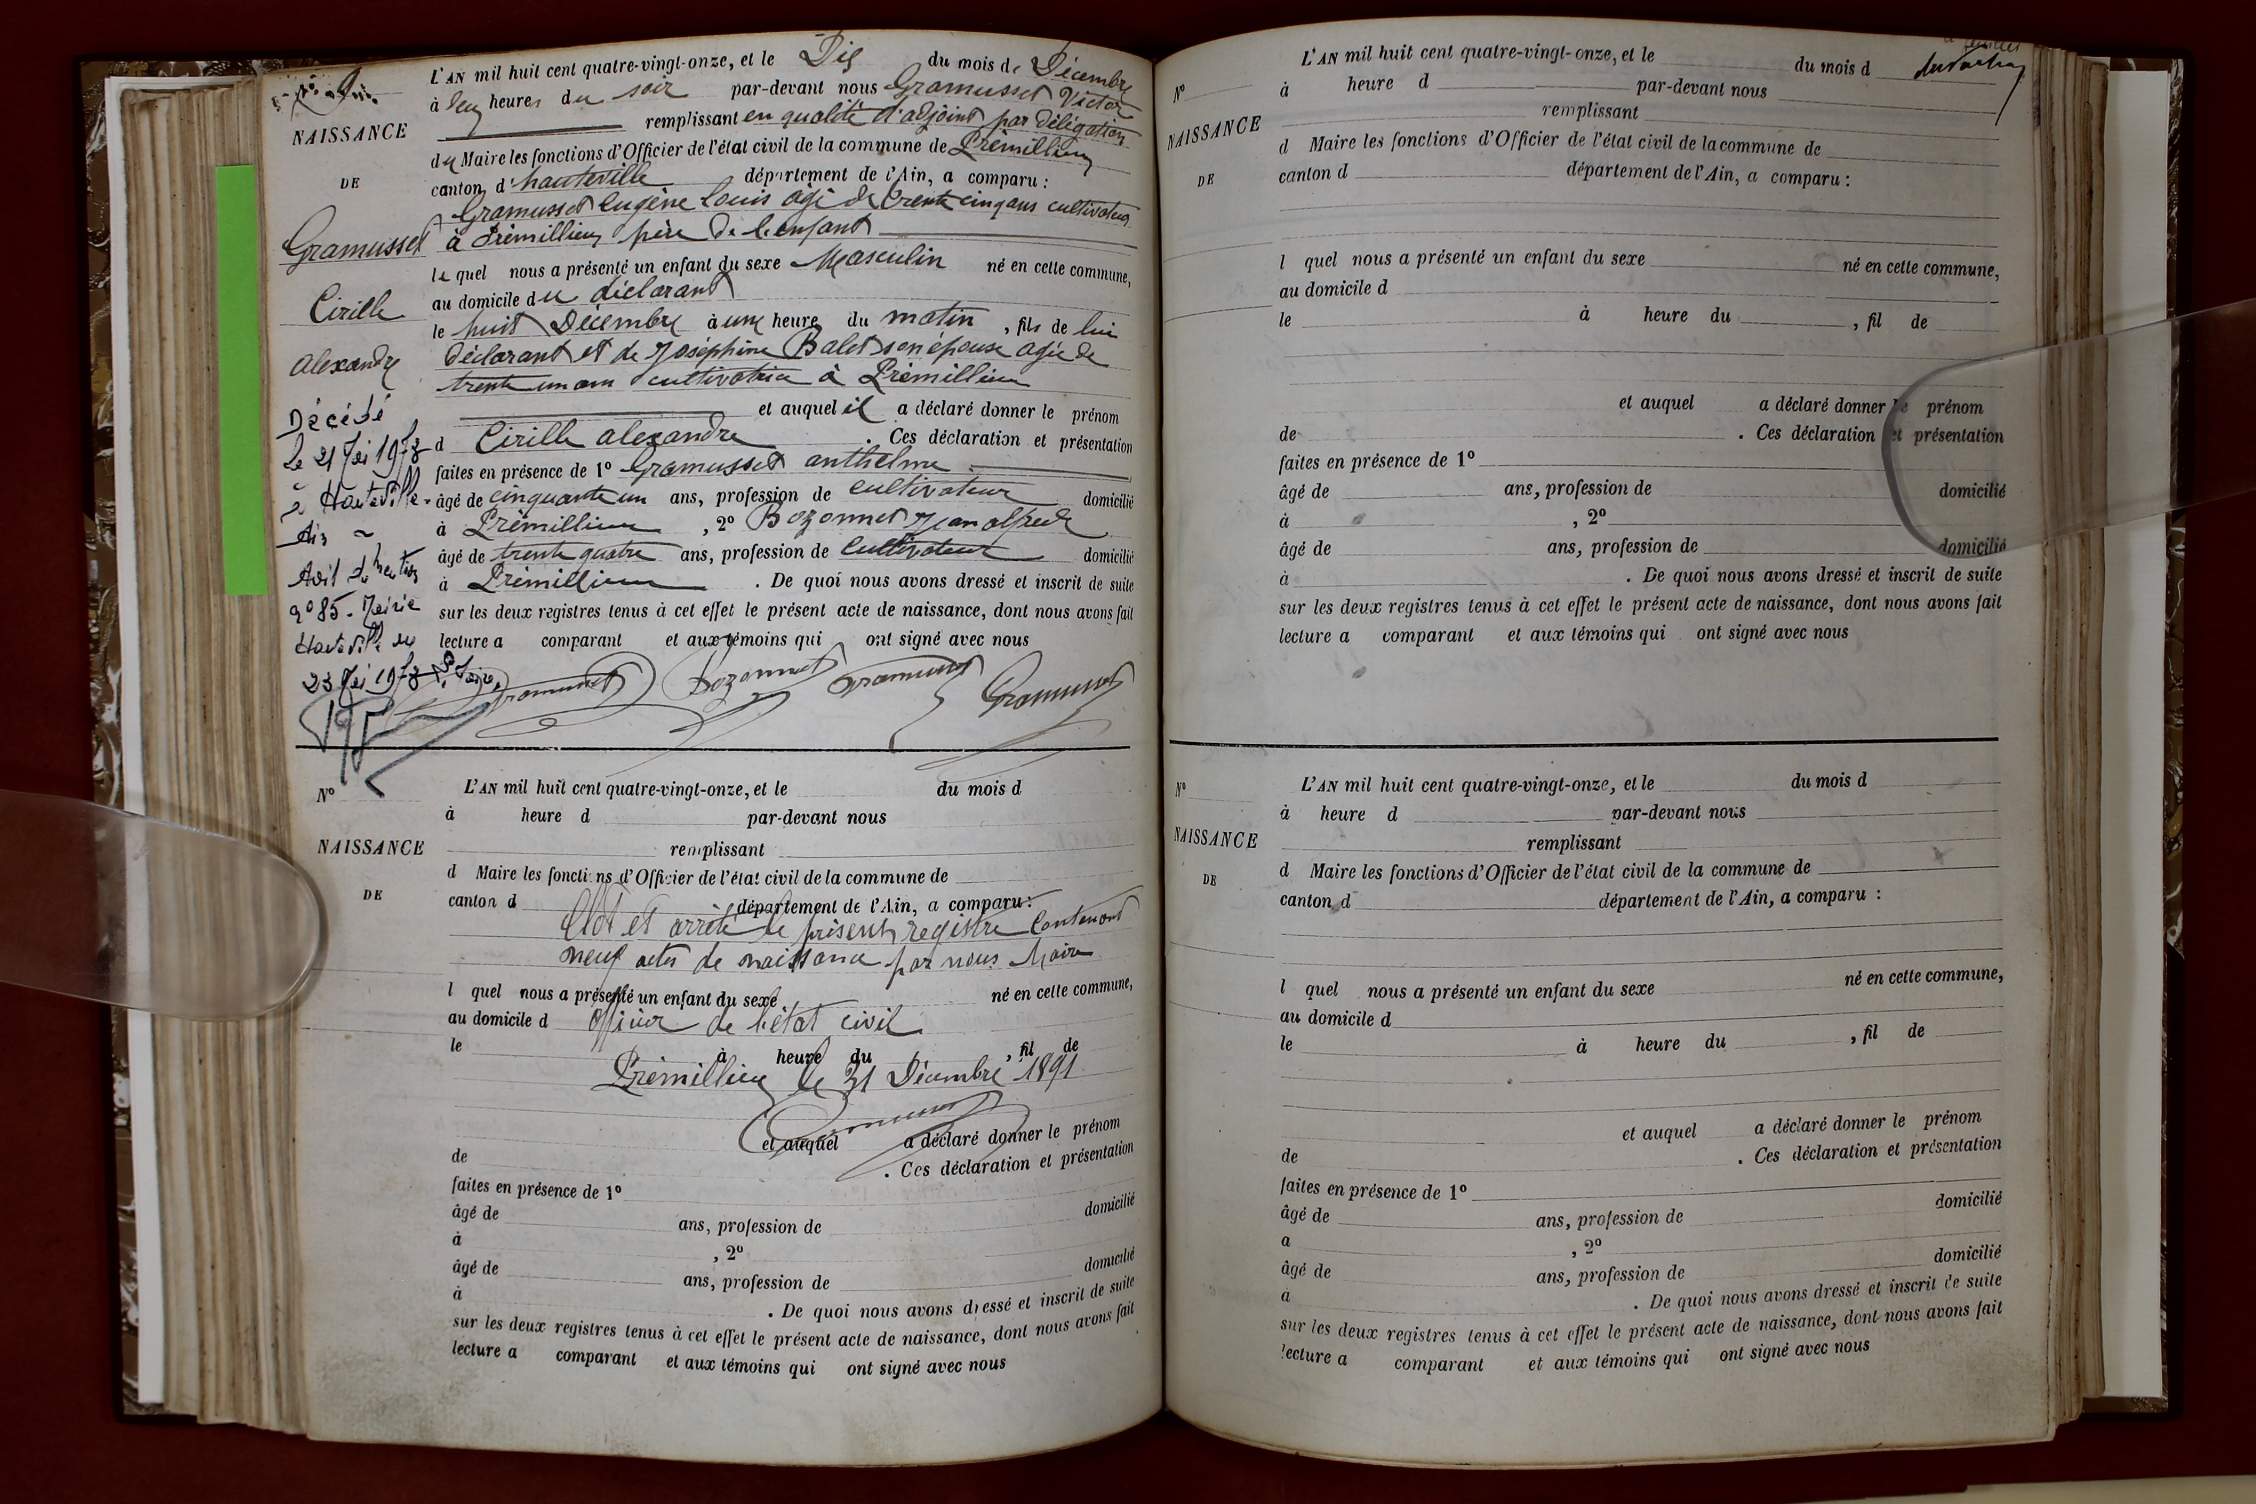 NAISSANCE
DE
Gramusset
Cirille
Alexandre
Décédé
le 21 Mai 1973
à Hauteville-
Ain
Avis de mention
n° 85. Mairie
Hauteville du
23 Mai 1973
L'AN mil huit cent quatre-vingt-onze, et le Dix du mois de Décembre
à heures du soir par-devant nous Gramusset Victor
remplissant en qualité d'adjoint par délégation
du Maire les fonctions d'Officier de l'état civil de la commune de Prémillieu
canton d'hauteville département de l'Ain, a comparu :
Gramusset Eugène Louis âgé de trente cinq ans cultivateur
à Prémillieu père de l'enfant
lequel nous a présenté un enfant du sexe Masculin né en cette commune,
au domicile du déclarant
le huit Décembre à une heure du matin, fils de lui
déclarant et de Joséphine Balet son épouse agée de
trente un ans cultivatrice à Prémillieu
et auquel il a déclaré donner le prénom
d Cirille alexandre. Ces déclaration et présentation
faites en présence de 1° Gramusset anthelme
âgé de cinquante un ans, profession de cultivateur domicilié
à Prémillieu, 2° Bozonnet Jean alfred
âgé de trente quatre ans, profession de Cultivateur domicilié
à Prémillieu. De quoi nous avons dressé et inscrit de suite
sur les deux registres tenus à cet effet le présent acte de naissance, dont nous avons fait
lecture a comparant et aux témoins qui ont signé avec nous
Gramusset Bozonnet Gramusset Gramusset
N°
NAISSANCE
DE
L'AN mil huit cent quatre-vingt-onze, et le du mois d
à heure d par-devant nous
remplissant
d Maire les fonctions d'Officier de l'état civil de la commune de
canton d département de l'Ain, a comparu :
Clot et arrêté le présent registre Contenant
neuf actes de naissance par nous Maire
l quel nous a présenté un enfant du sexe né en cette commune,
au domicile d officier de l'état civil
le à heure du , fil de
Prémillieu le 31 Décembre 1891
Gramusset
et auquel a déclaré donner le prénom
de . Ces déclaration et présentation
faites en présence de 1°
âgé de ans, profession de domicilié
à , 2°
âgé de ans, profession de domicilié
à . De quoi nous avons dressé et inscrit de suite
sur les deux registres tenus à cet effet le présent acte de naissance, dont nous avons fait
lecture a comparant et aux témoins qui ont signé avec nous
N°
NAISSANCE
DE
L'AN mil huit cent quatre-vingt-onze, et le du mois d
à heure d par-devant nous
remplissant
d Maire les fonctions d'Officier de l'état civil de la commune de
canton d département de l'Ain, a comparu :
l quel nous a présenté un enfant du sexe né en cette commune,
au domicile d
le à heure du , fil de
et auquel a déclaré donner le prénom
de . Ces déclaration et présentation
faites en présence de 1°
âgé de ans, profession de domicilié
à , 2°
âgé de ans, profession de domicilié
à . De quoi nous avons dressé et inscrit de suite
sur les deux registres tenus à cet effet le présent acte de naissance, dont nous avons fait
lecture a comparant et aux témoins qui ont signé avec nous
N°
NAISSANCE
DE
L'AN mil huit cent quatre-vingt-onze, et le du mois d
à heure d par-devant nous
remplissant
d Maire les fonctions d'Officier de l'état civil de la commune de
canton d département de l'Ain, a comparu :
l quel nous a présenté un enfant du sexe né en cette commune,
au domicile d
le à heure du , fil de
et auquel a déclaré donner le prénom
de . Ces déclaration et présentation
faites en présence de 1°
âgé de ans, profession de domicilié
a , 2°
âgé de ans, profession de domicilié
à . De quoi nous avons dressé et inscrit de suite
sur les deux registres tenus à cet effet le présent acte de naissance, dont nous avons fait
lecture a comparant et aux témoins qui ont signé avec nous